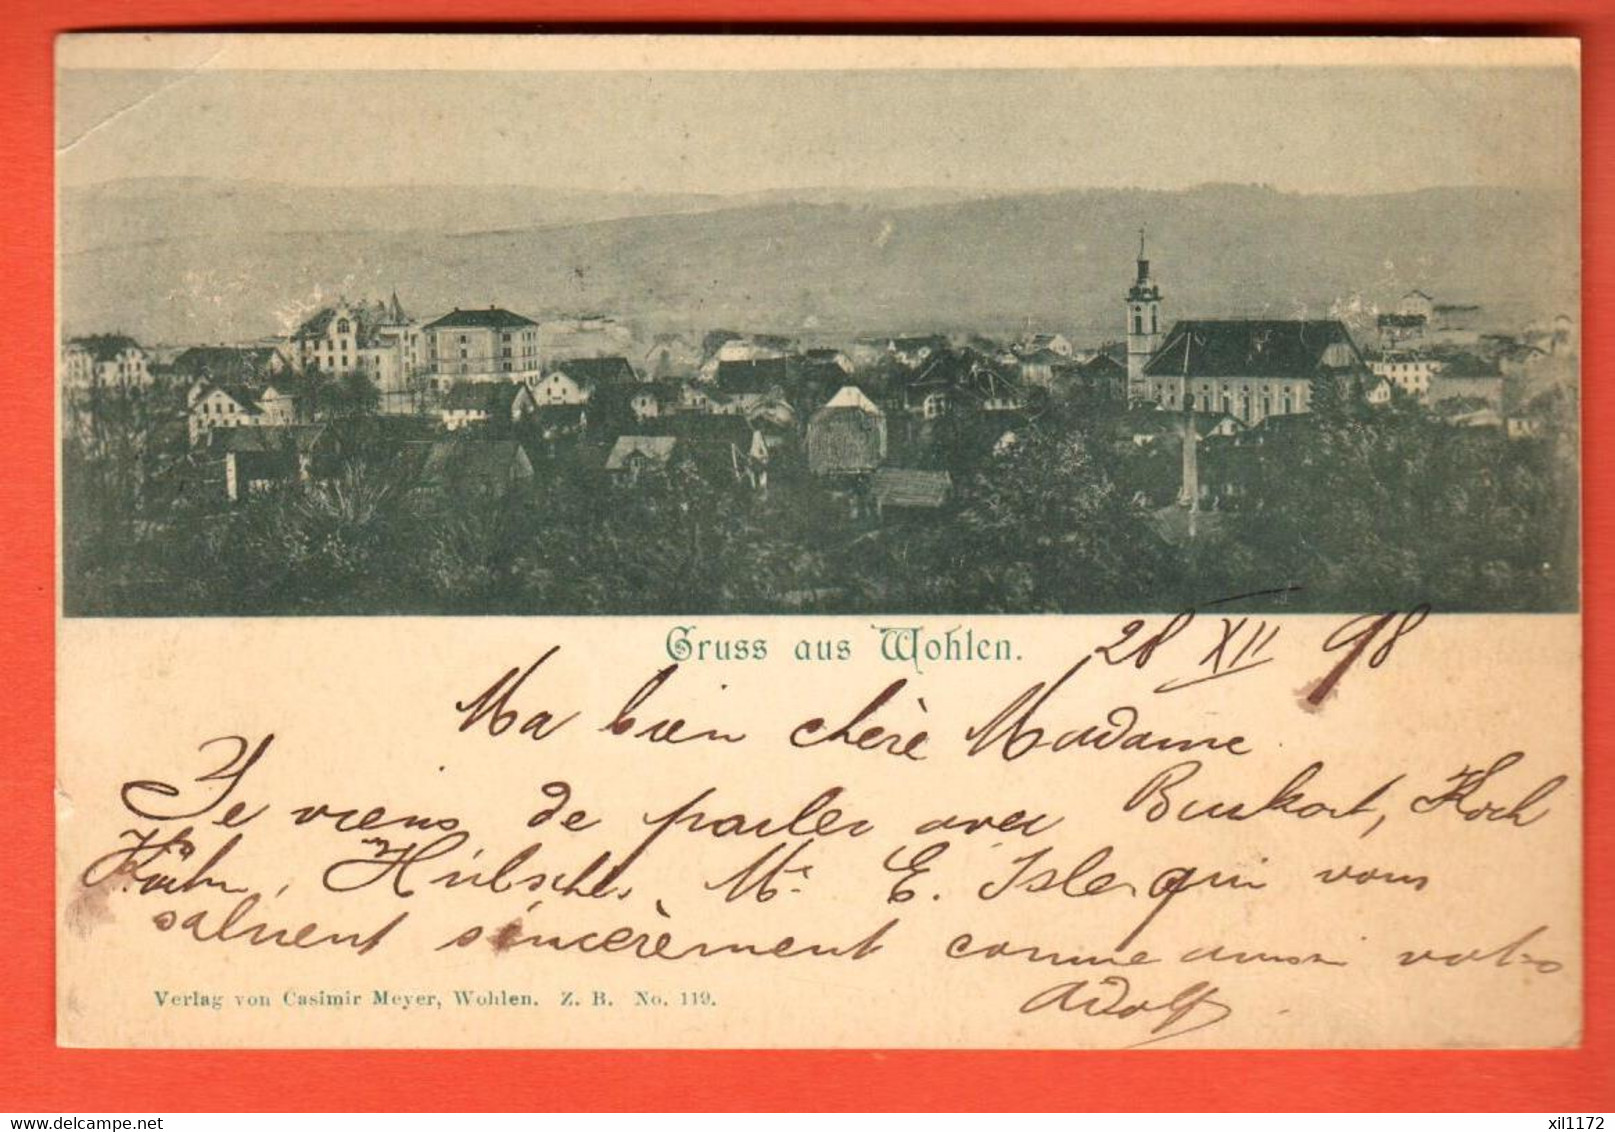 Gruss aus Wohlen.
28 XII 98
Ma bien chère Madame
Je viens de parler avec Burkart, Koch
Kuhn, Hübscher, Mr E. Isler qui vous
saluent sincèrement comme aussi votre
Adolf
Verlag von Casimir Meyer, Wohlen. Z. B. No. 119.
delcampe.net
xil1172